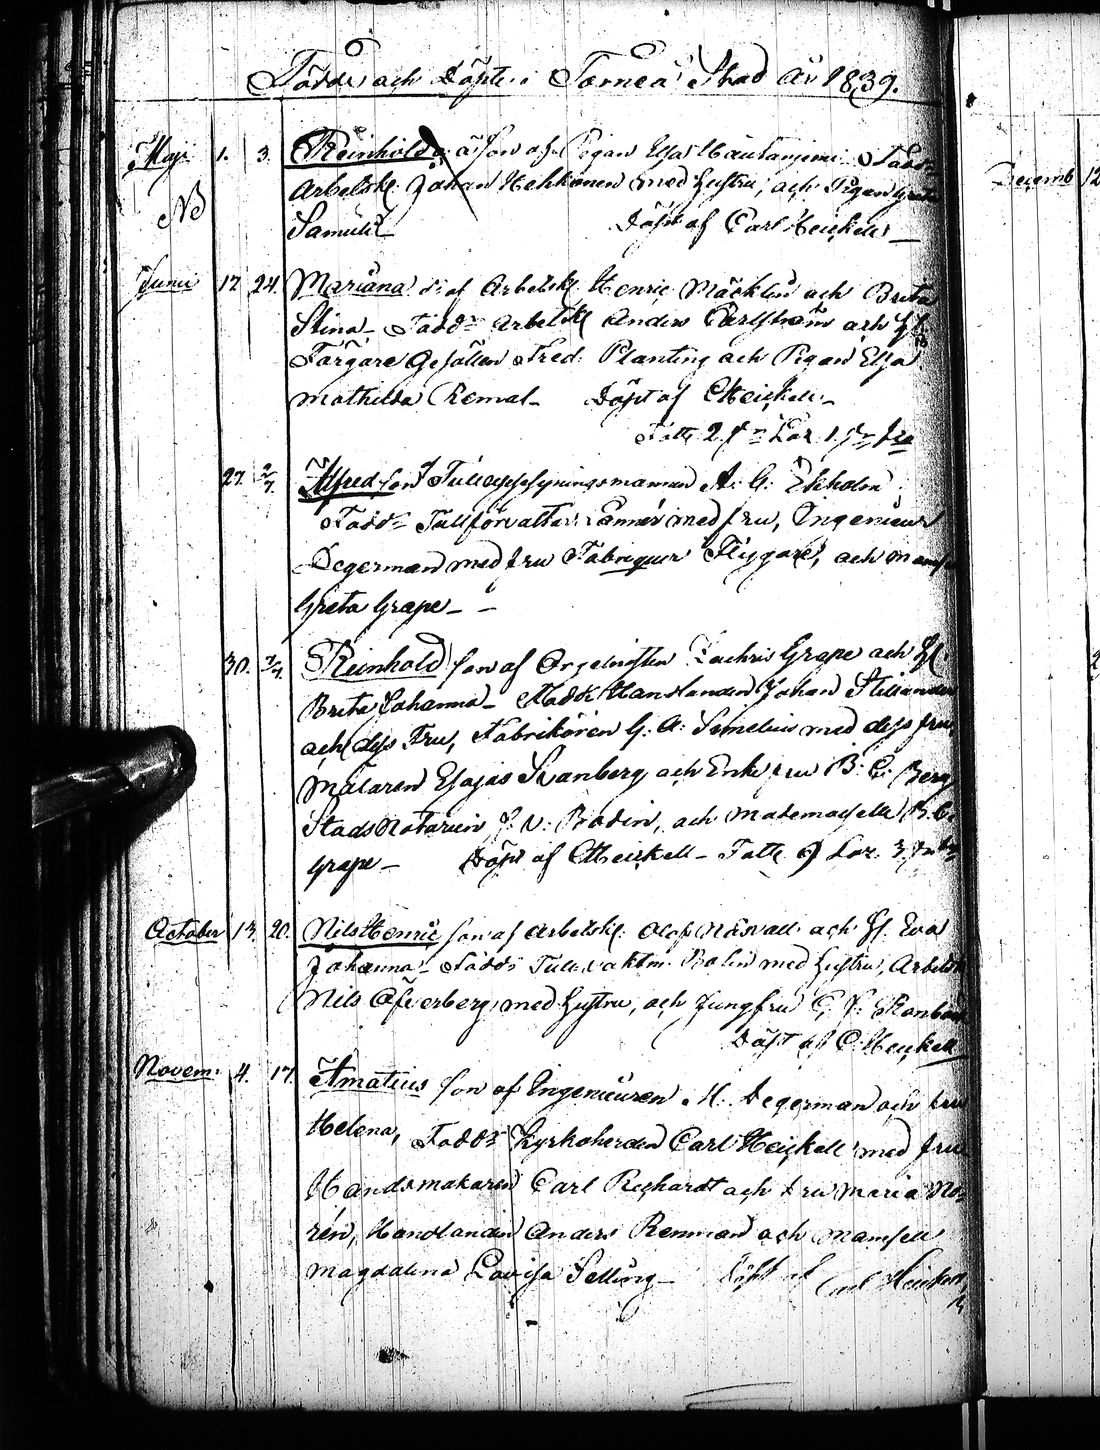 Födde och Döpte i Torneå Stad År 1839.
Maji 1. 3. Reinhold oä Son af Pigan Elsa Hautaniemi Fadd:
Arbetsk. Johan Hekkanen med hustru, och Pigan Greta
NB Samuli Döpt af Carl Heickell
Junii 17 24. Mariana d: af Arbetsk. Henric Mäcklin och Brita
Stina Fadd: Arbetsk Anders Carlström och H.
Färgare Gesällen Fred. Planting och Pigan Elsa
Mathilda Remal Döpt af CHeickell
27. 2/7. Alfred son Tulluppsyningsmannen A. G. Ekholm
Fadd: Tullförvaltar med fru, Ingenieur
Degerman med fru Fabriquer Flygare, och Mams
Greta Grape
30. 7/7. Reinhold son af Orgelnisten Zachris Grape och H.
Brita Johanna Fadd: Handlanden Johan
och dess Fru, Fabrikören G. A. med dess fru
Målaren Esajas Svanberg och Enke fru B. C. Berg
Stads Notarien J. N. Bodin, och Mademoiselle B. C.
Grape Döpt af CHeickell Fatt. 9 Lar. 3
October 13. 20. Nils Henric son af Arbetsk. Olof Nåsvall och H. Eva
Johanna Fadd: Tullvaktm. Bolin med hustru, Arbetsk
Nils Öfverberg med hustru, och Jungfru C.
Döpt af C. Heickell
Novem: 4. 17. Amatius son af Engenieuren M. Degerman och fru
Helena, Fadd: Kyrkoherden Carl Heickell med fru
Handsmakaren Carl Richardt och fru Maria No-
rén, Handlanden Anders Renman och Mamsell
Magdalena Lovisa Selling Döpt af Carl Heickell
Decemb 12